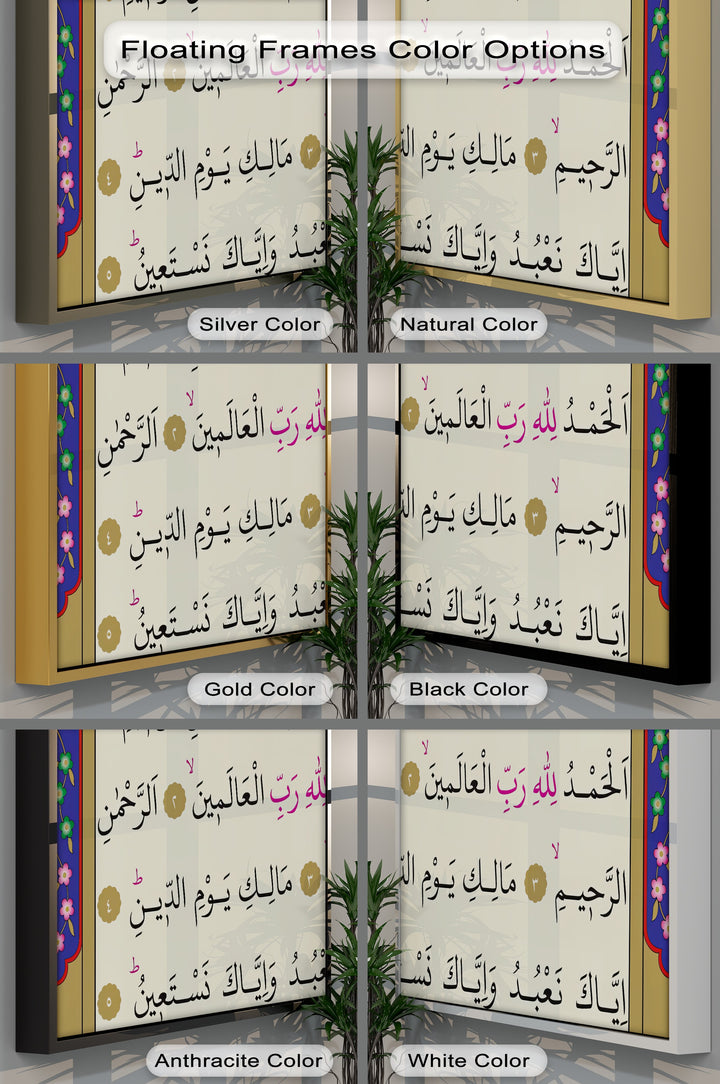 Floating Frames Color Options
رَبِّ الْعَالَم۪ينَ ٢ اَلرَّحْمٰنِ
٣ مَالِكِ يَوْمِ الدّ۪ينِؕ ٤
وَاِيَّاكَ نَسْتَع۪ينُؕ ٥
Silver Color
اَلْحَمْدُ لِلّٰهِ رَبِّ الْعَالَم۪ينَ ٢
الرَّح۪يمِۙ ٣ مَالِكِ يَوْمِ
اِيَّاكَ نَعْبُدُ وَاِيَّاكَ
Natural Color
رَبِّ الْعَالَم۪ينَۙ ٢ اَلرَّحْمٰنِ
٣ مَالِكِ يَوْمِ الدّ۪ينِؕ ٤
وَاِيَّاكَ نَسْتَع۪ينُؕ ٥
Gold Color
اَلْحَمْدُ لِلّٰهِ رَبِّ الْعَالَم۪ينَۙ ٢
الرَّح۪يمِۙ ٣ مَالِكِ يَوْمِ
اِيَّاكَ نَعْبُدُ وَاِيَّاكَ
Black Color
رَبِّ الْعَالَم۪ينَۙ ٢ اَلرَّحْمٰنِ
٣ مَالِكِ يَوْمِ الدّ۪ينِؕ ٤
وَاِيَّاكَ نَسْتَع۪ينُؕ ٥
Anthracite Color
اَلْحَمْدُ لِلّٰهِ رَبِّ الْعَالَم۪ينَۙ ٢
الرَّح۪يمِۙ ٣ مَالِكِ يَوْمِ
اِيَّاكَ نَعْبُدُ وَاِيَّاكَ
White Color